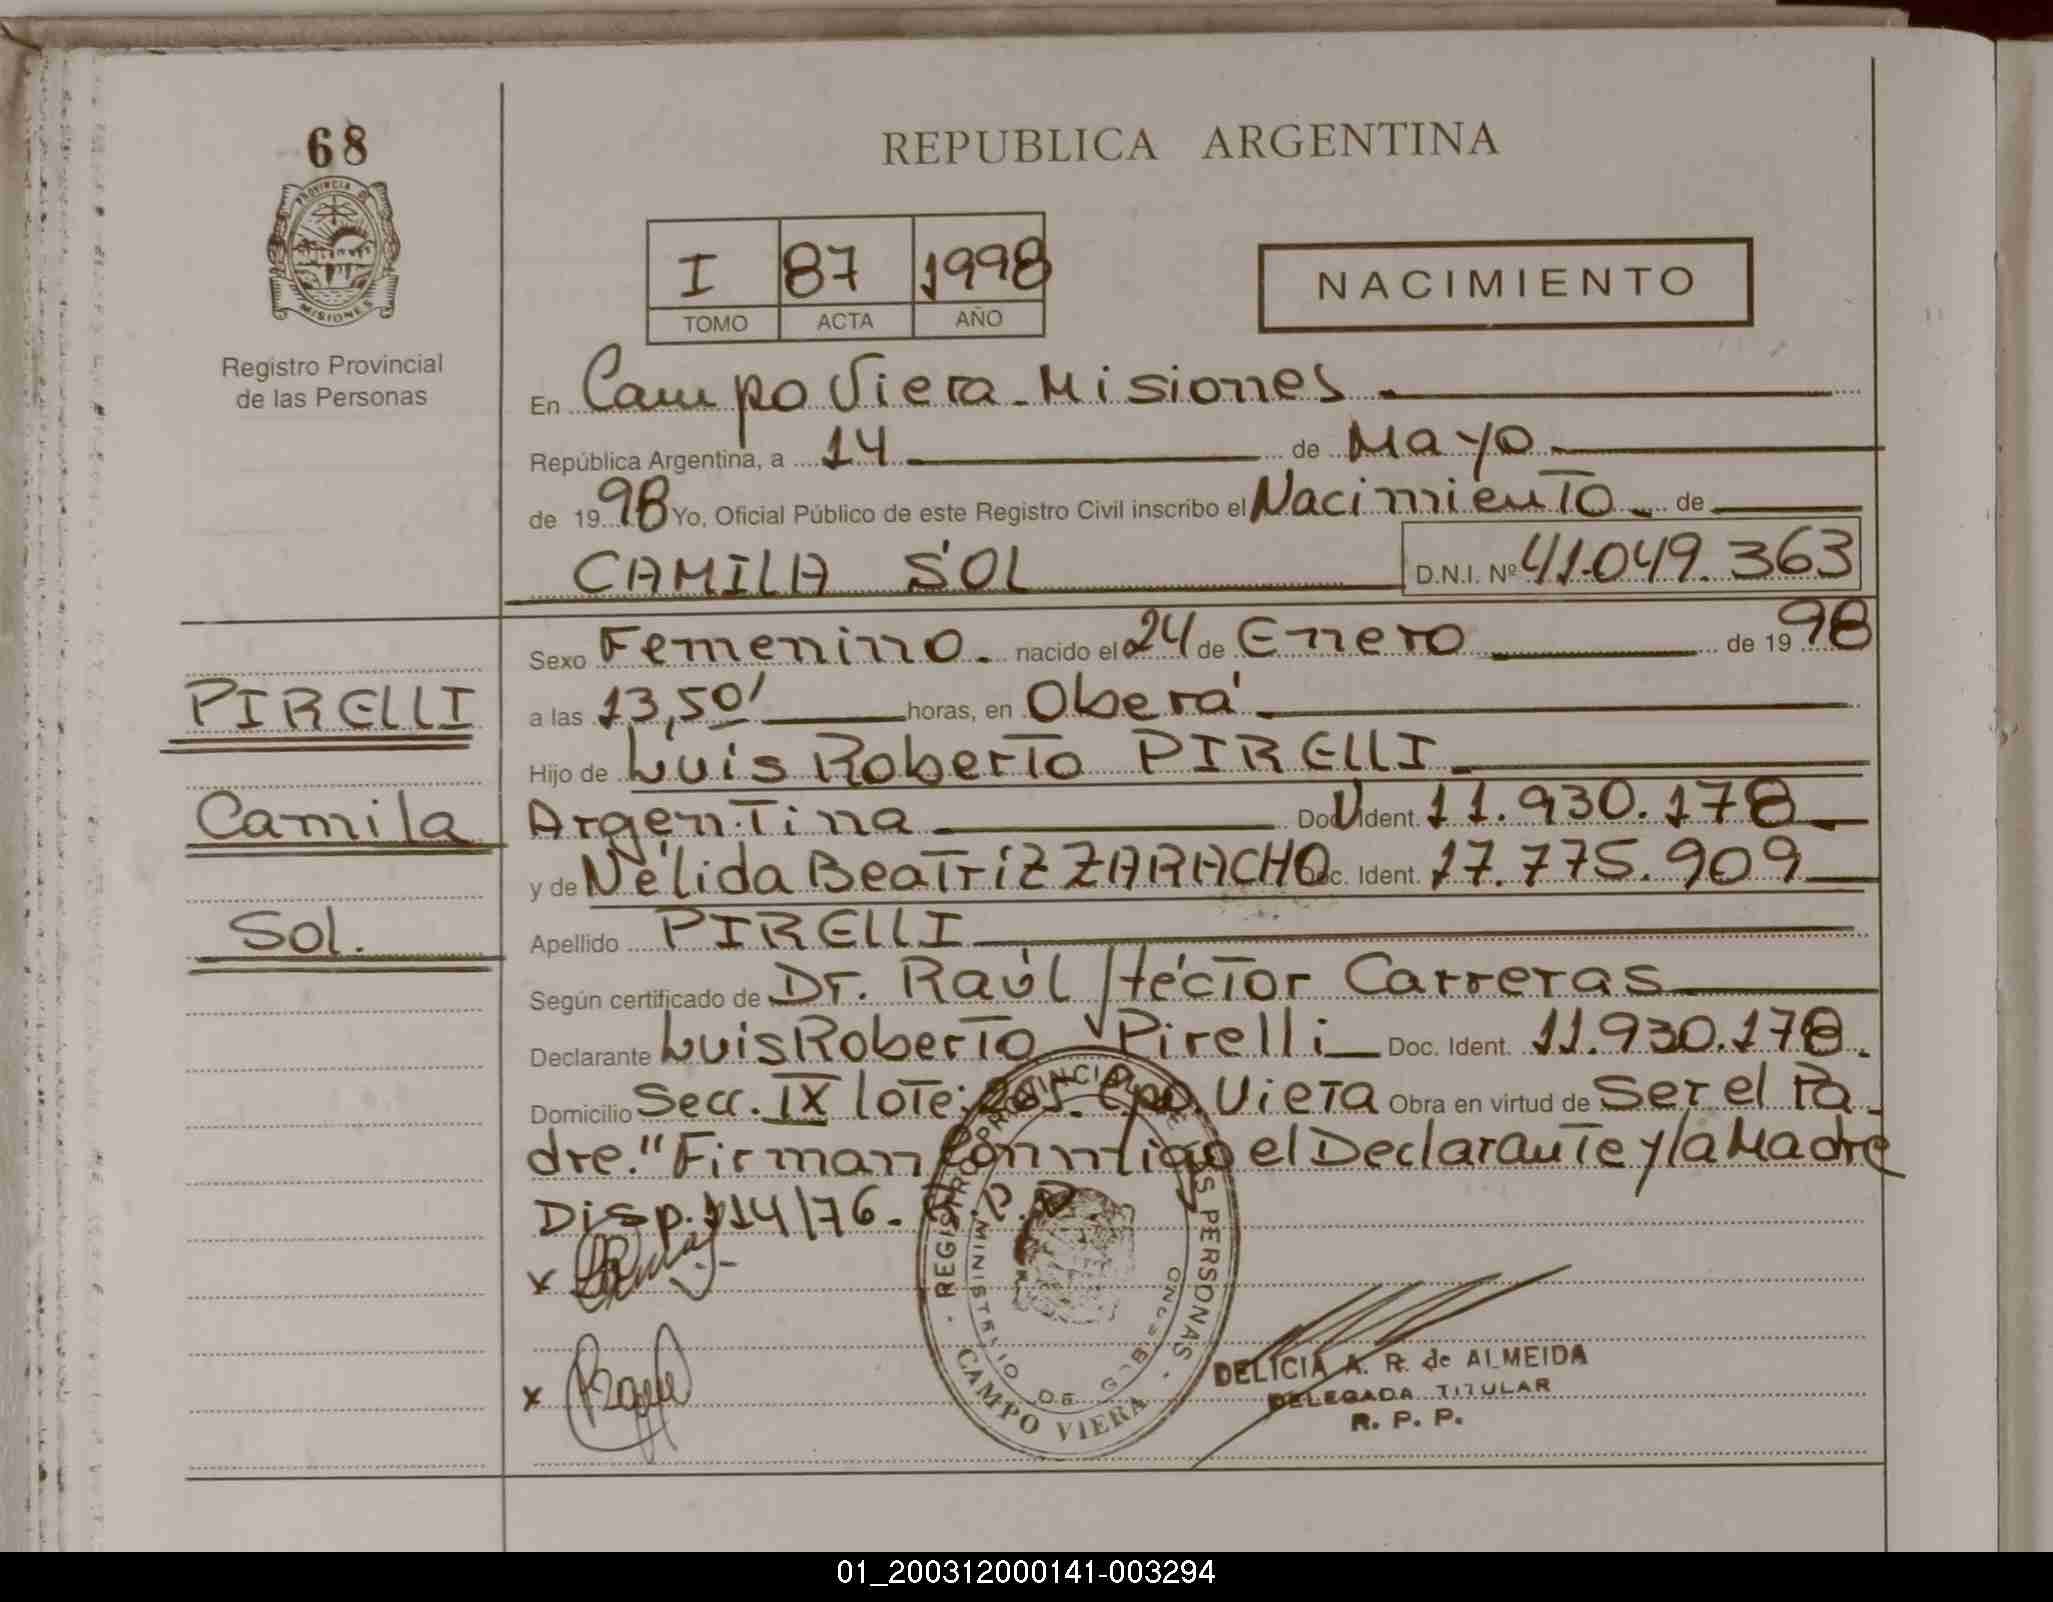 68
PROVINCIA DE
MISIONES
Registro Provincial
de las Personas
REPUBLICA ARGENTINA
I 87 1998
TOMO ACTA AÑO
NACIMIENTO
En Campo Viera - Misiones
República Argentina, a 14 de Mayo
de 1998 Yo, Oficial Público de este Registro Civil inscribo el Nacimiento de
CAMILA SOL D.N.I. Nº 41.049.363
Sexo Femenino. nacido el 24 de Enero de 1998
PIRELLI
a las 13,50' horas, en Oberá
Hijo de Luis Roberto PIRELLI
Camila
Argentina Doc. Ident. 11.930.178
y de Nélida Beatriz ZARACHO Doc. Ident. 17.775.909
Sol.
Apellido PIRELLI
Según certificado de Dr. Raúl Héctor Carreras
Declarante Luis Roberto Pirelli Doc. Ident. 11.930.178.
Domicilio Secc. IX lote: Cpo. Viera Obra en virtud de Ser el Pa-
dre." Firman Conmigo el Declarante y la Madre
Disp. 114/76. R.P.P.
REGISTRO PROVINCIAL DE LAS PERSONAS
MINISTERIO DE GOBIERNO
CAMPO VIERA
DELICIA A. R. de ALMEIDA
DELEGADA TITULAR
R. P. P.
01_200312000141-003294